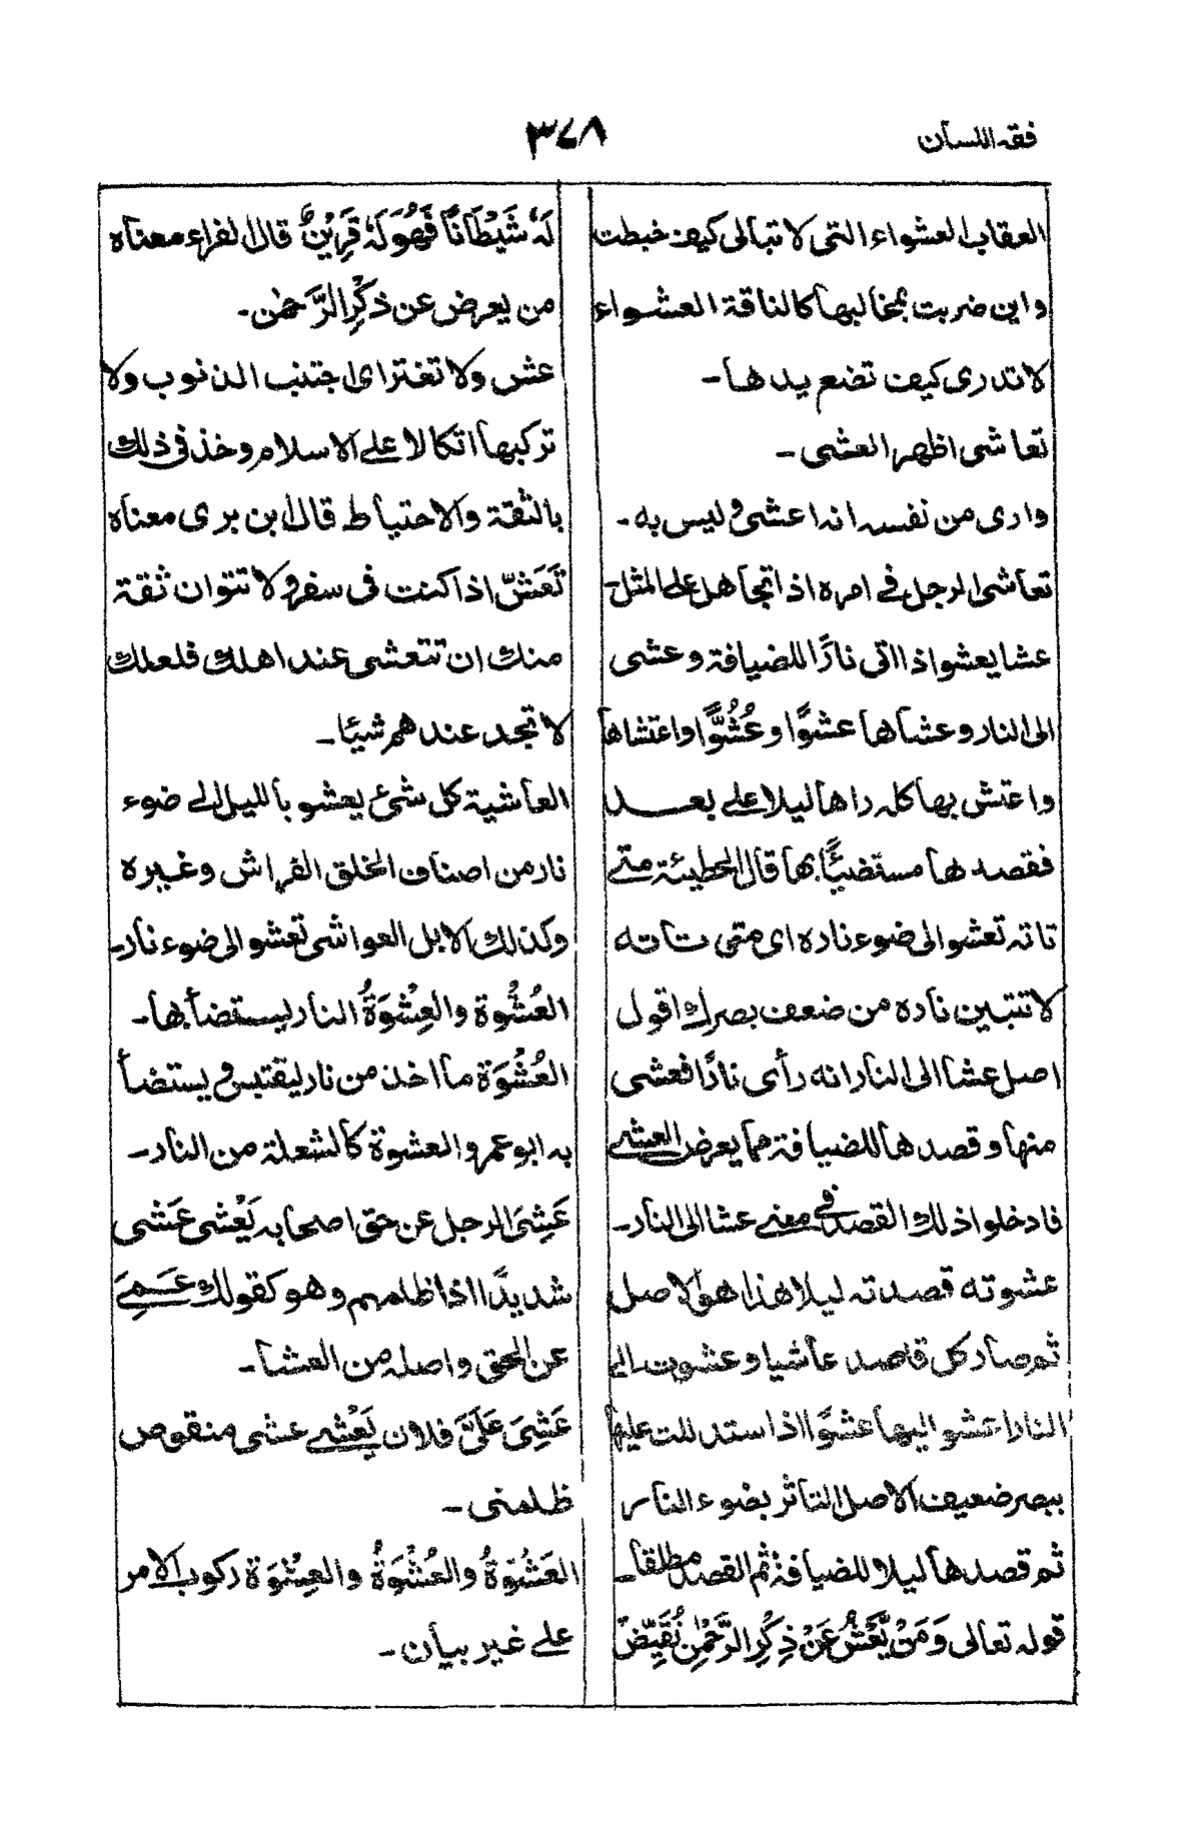 فقه اللسان
٣٤٨
العقاب العشواء التی لا تبالی کیف خبطت
واین ضربت بمخالبها کالناقة العشواء
لا تدری کیف تضع یدها۔
تعاشی اظهر العشی۔
واری من نفسه انه اعشی و لیس به۔
تعاشی الرجل فی امره اذا تجاهل علی المثل۔
عشا یعشو اذا اتی نارًا للضیافة و عشی
الی النار و عشاها عشوًا و عُشُوًّا واعتشاها
واعتش بها کله راها لیلا علی بعد
فقصدها مستضیئًا بها قال الحطیئة متی
تاته تعشو الی ضوء ناره ای متی تاته
لا تتبین ناره من ضعف بصرك اقول
اصل عشا الی النار انه رأی نارًا فعشی
منها و قصدها للضیافة مما یعرض العشی
فادخلوا ذلك القصد فی معنی عشا الی النار۔
عشوته قصدته لیلا هذا هو الاصل
ثم صار کل قاصد عاشیا و عشوت الی
النار اعشو الیها عشوًا اذا ستدللت علیها
ببصر ضعیف الاصل التاثر بضوء النار
ثم قصدها لیلا للضیافة ثم القصد مطلقا۔
قوله تعالی وَمَنْ یَّعْشُ عَنْ ذِکْرِ الرَّحْمٰنِ نُقَیِّضْ
لَهٗ شَیْطَانًا فَهُوَ لَهٗ قَرِیْنٌ قال الفراء معناه
من یعرض عن ذکْرِ الرَّحمٰن۔
عش ولا تغتر ای اجتنب الذنوب ولا
ترکبها اتکالا علی الاسلام وخذ فی ذلك
بالثقة والاحتیاط قال ابن بری معناه
تَعَشّ اذا کنت فی سفر و لا تتوان ثقة
منك ان تتعشی عند اهلك فلعلك
لا تجد عندهم شیئا۔
العاشیة کل شیء یعشو باللیل الی ضوء
نار من اصناف الخلق الفراش وغیره
وکذلك الابل العواشی تعشو الی ضوء نار۔
العُشْوة والعِشْوَةُ النار یستضأ بها۔
العُشْوَة ما اخذ من نار لیقتبس و یستضأ
به ابو عمرو العشوة کالشعلة من النار۔
عَشِیَ الرجل عن حق اصحابه یَعْشی عَشی
شدیدًا اذا ظلمهم و هو کقولك عَمِیَ
عن الحق واصله من العشا۔
عَشِیَ عَلَیَّ فلان یَعْشی عشی منقوص
ظلمنی۔
العَشْوَةُ والعُشْوَةُ والعِشْوَة رکوب الامر
علی غیر بیان۔